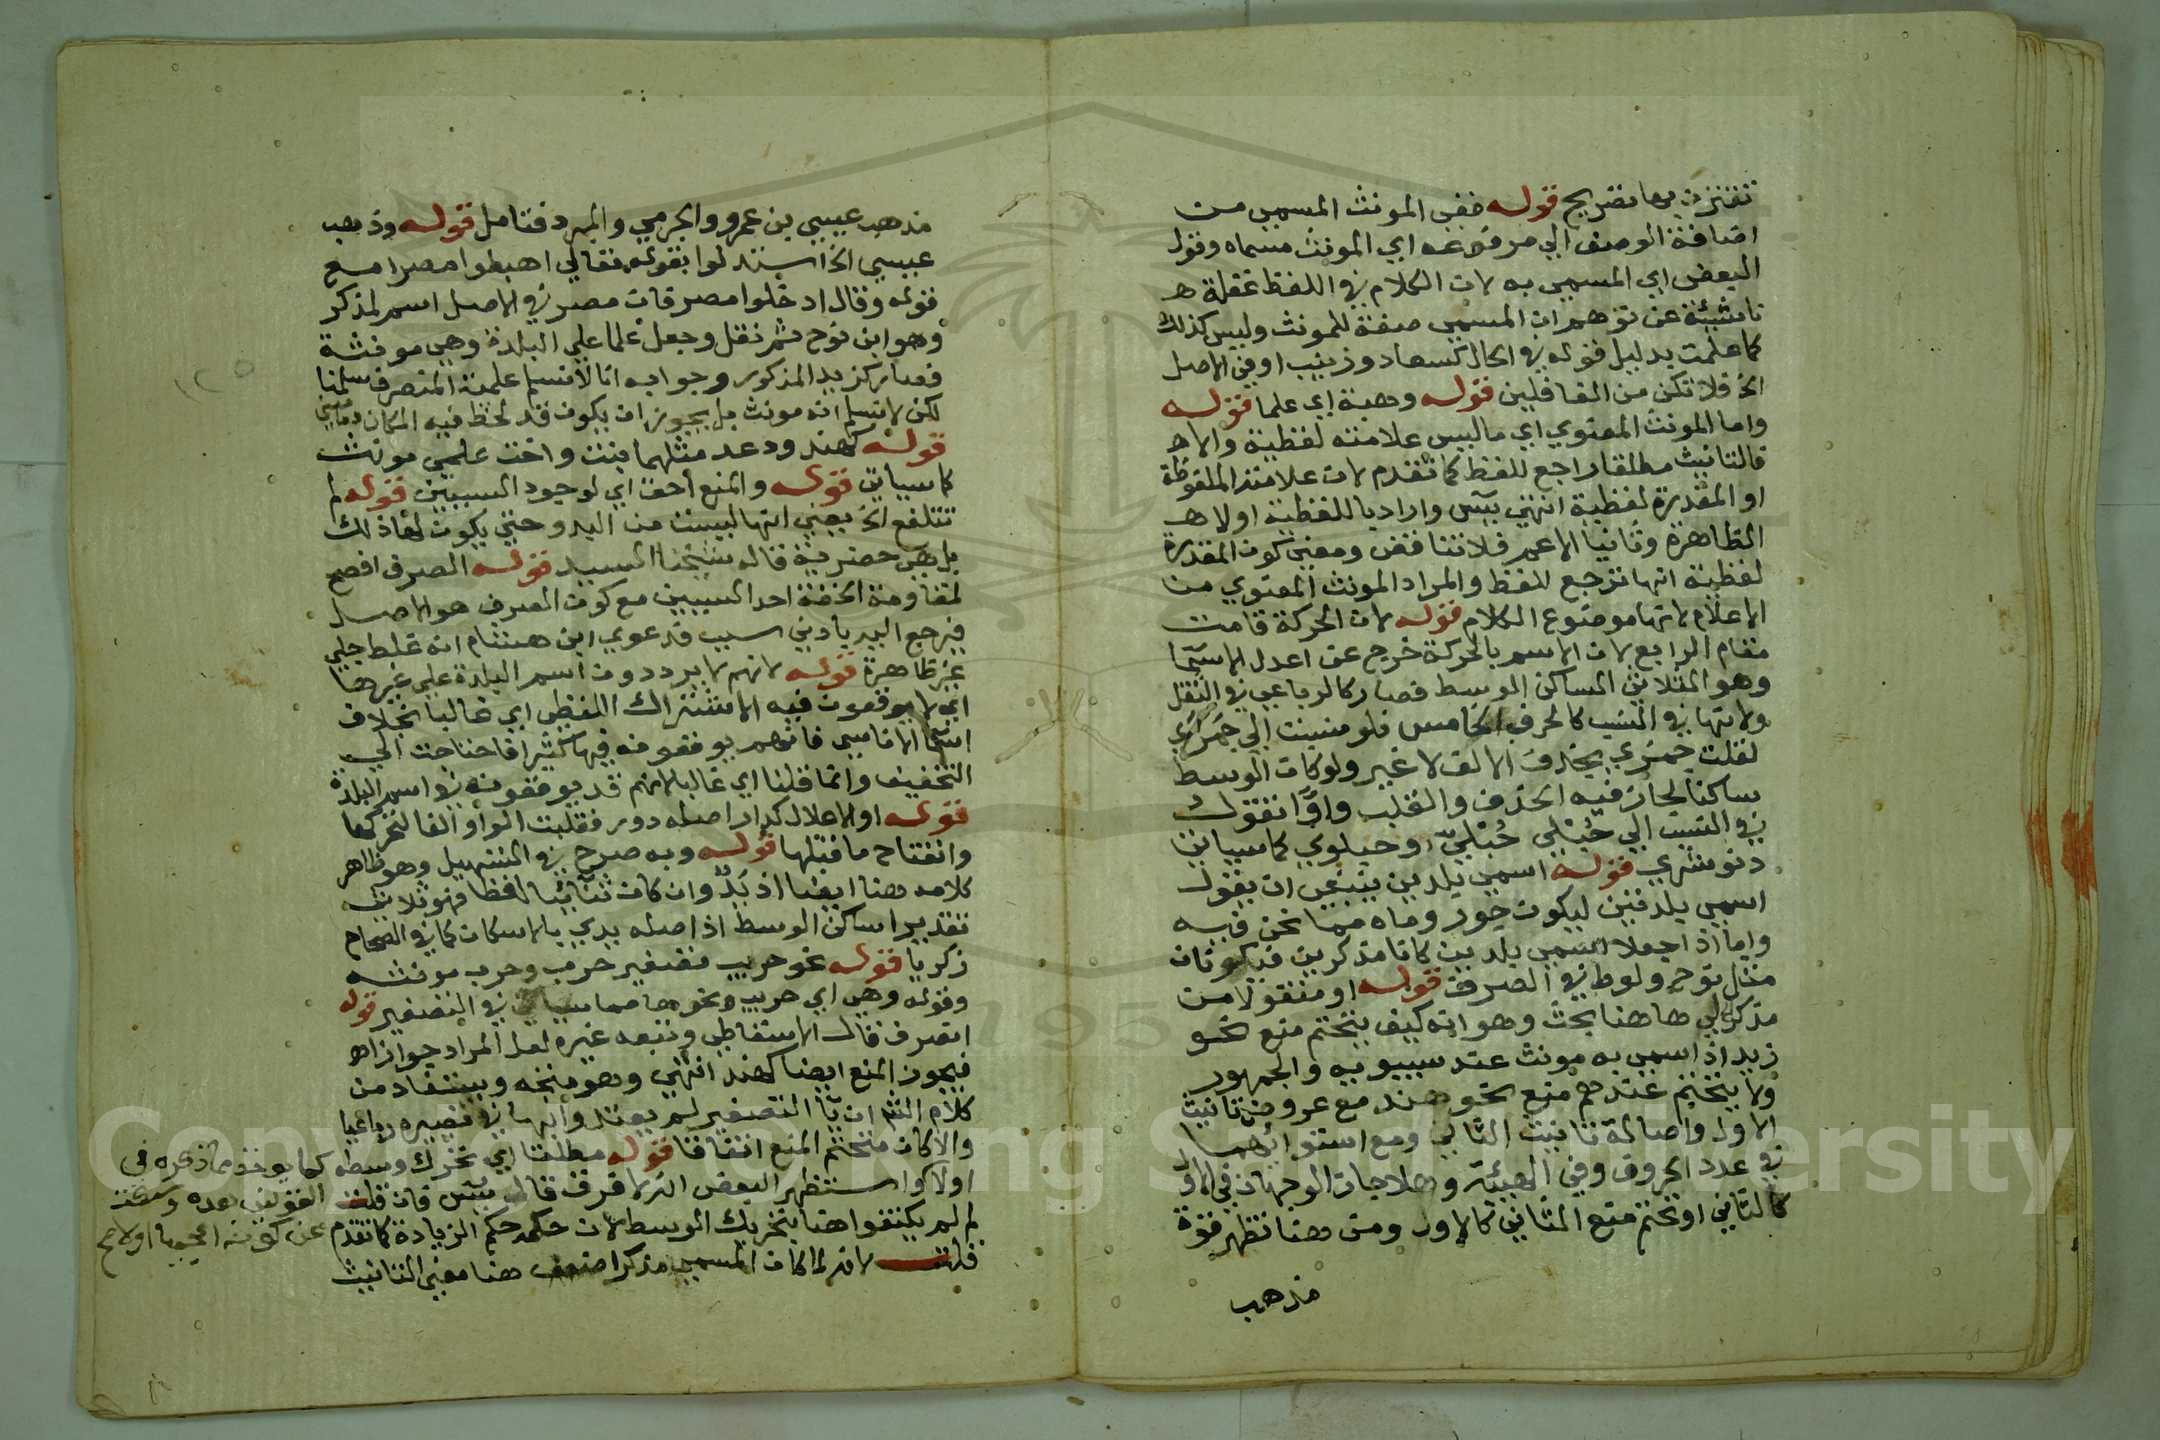 تقترن بها تصريح قوله ففي المونث المسمي من
اضافة الوصف الي مرفوعه اي المونث مسماه وقول
البعض اي المسمي به لان الكلام في اللفظ غفلة
ناشئة عن توهم ان المسمي صفة للمونث وليس كذلك
كما علمت بدليل قوله في الحال كسعاد وزينب او في الاصل
الخ فلا تكن من الغافلين قوله وهبة اي علما قوله
واما المونث المعنوي اي ما ليس علامته لفظية والا
فالتانيث مطلقا راجع للفظ كما تقدم لان علامته الملفوظة
او المقدرة لفظية انتهي يس واراد باللفظية اولا
الظاهرة وثانيا الاعم فلا تناقض ومعني كون المقدرة
لفظية انها ترجع للفظ والمراد المونث المعنوي من
الاعلام لانها موضوع الكلام قوله لان الحركة قامت
مقام الرابع لان الاسم بالحركة خرج عن اعدل الاسما
وهو الثلاثي الساكن الوسط فصار كالرباعي في الثقل
ولانها في النسب كالحرف الخامس فلو نسبت الي جمزي
لقلت جمزي بحذف الالف لا غير ولو كان الوسط
ساكنا لجاز فيه الحذف والقلب واوا تقول
في النسب الي حبلي حبلي او حبلوي كما سياتي
دنوشري قوله اسمي بلدين ينبغي ان يقول
اسمي بلدتين ليكون جور وماه مما نحن فيه
واما اذا جعلا اسمي بلدين كانا مذكرين فيكونان
مثل نوح ولوط في الصرف قوله او منقولا من
مذكر لي هاهنا بحث وهو انه كيف يتحتم منع نحو
زيد اذا سمي به مونث عند سيبويه والجمهور
ولا يتحتم عندهم منع نحو هند مع عروض تانيث
الاول واصالة تانيث الثاني ومع استوائهما
في عدد الحروف وفي الهيئة وهلا جاز الوجهان في الاول
كالثاني او تحتم منع الثاني كالاول ومن هنا تظهر قوة
مذهب
مذهب عيسي بن عمرو والجرمي والمبرد فتامل قوله وذهب
عيسي الخ استدلوا بقوله تعالي اهبطوا مصرا مع
قوله وقال ادخلوا مصر فان مصر في الاصل اسم لمذكر
وهو ابن نوح ثم نقل وجعل علما علي البلدة وهي مونثة
فصار كزيد المذكور وجوابه انا لا نسلم علمية المنصرف سلمنا
لكن لا نسلم انه مونث بل يجوز ان يكون قد لحظ فيه المكان
قوله كهند ودعد مثلهما بنت واخت علمي مونث
كما سياتي قوله والمنع احق اي لوجود السببين قوله لم
تتلفع الخ يعني انها ليست من البدو حتي يكون لها ذلك
بل هي حضرية قاله شيخنا السيد قوله الصرف افصح
لمقاومة الخفة احد السببين مع كون الصرف هو الاصل
فيرجع اليه بادني سبب فدعوي ابن هشام انه غلط جلي
غير ظاهرة قوله لانهم لا يرددون اسم البلدة علي غيرها
اي لا يوقعون فيه الاشتراك اللفظي اي غالبا بخلاف
اسما الاناسي فانهم يوقعونه فيها كثيرا فاحتاجت الي
التخفيف وانما قلنا اي غالبا لانهم قد يوقعونه في اسم البلدة
قوله او الاعلال كدار اصله دور فقلبت الواو الفا لتحركها
وانفتاح ما قبلها قوله وبه صرح في التسهيل وهو ظاهر
كلامه هنا ايضا اذ يد وان كان ثنائيا لفظا فهو ثلاثي
تقديرا ساكن الوسط اذ اصله يدي بالاسكان كما في الصحاح
زكريا قوله نحو حريب تصغير حرب وحرب مونثه
وقوله وهي اي حريب ونحوها مما سياتي في التصغير قوله
انصرف قال الاسقاطي وتبعه غيره لعل المراد جوازا
فيجوز المنع ايضا كهند انتهي وهو متجه ويستفاد من
كلام الش ان يا التصغير لم يعتد وابها في تصييره رباعيا
والا كان متحتم المنع اتفاقا قوله مطلقا اي تحرك وسطه كما يوخذ مما ذكره في
اولا واستظهر البعض انه لا فرق قال يس فان قلت
لم لم يكتفوا هنا بتحريك الوسط لان حكمه حكم الزيادة كما تقدم
قلت لانه لما كان المسمي مذكرا ضعف هنا معني التانيث